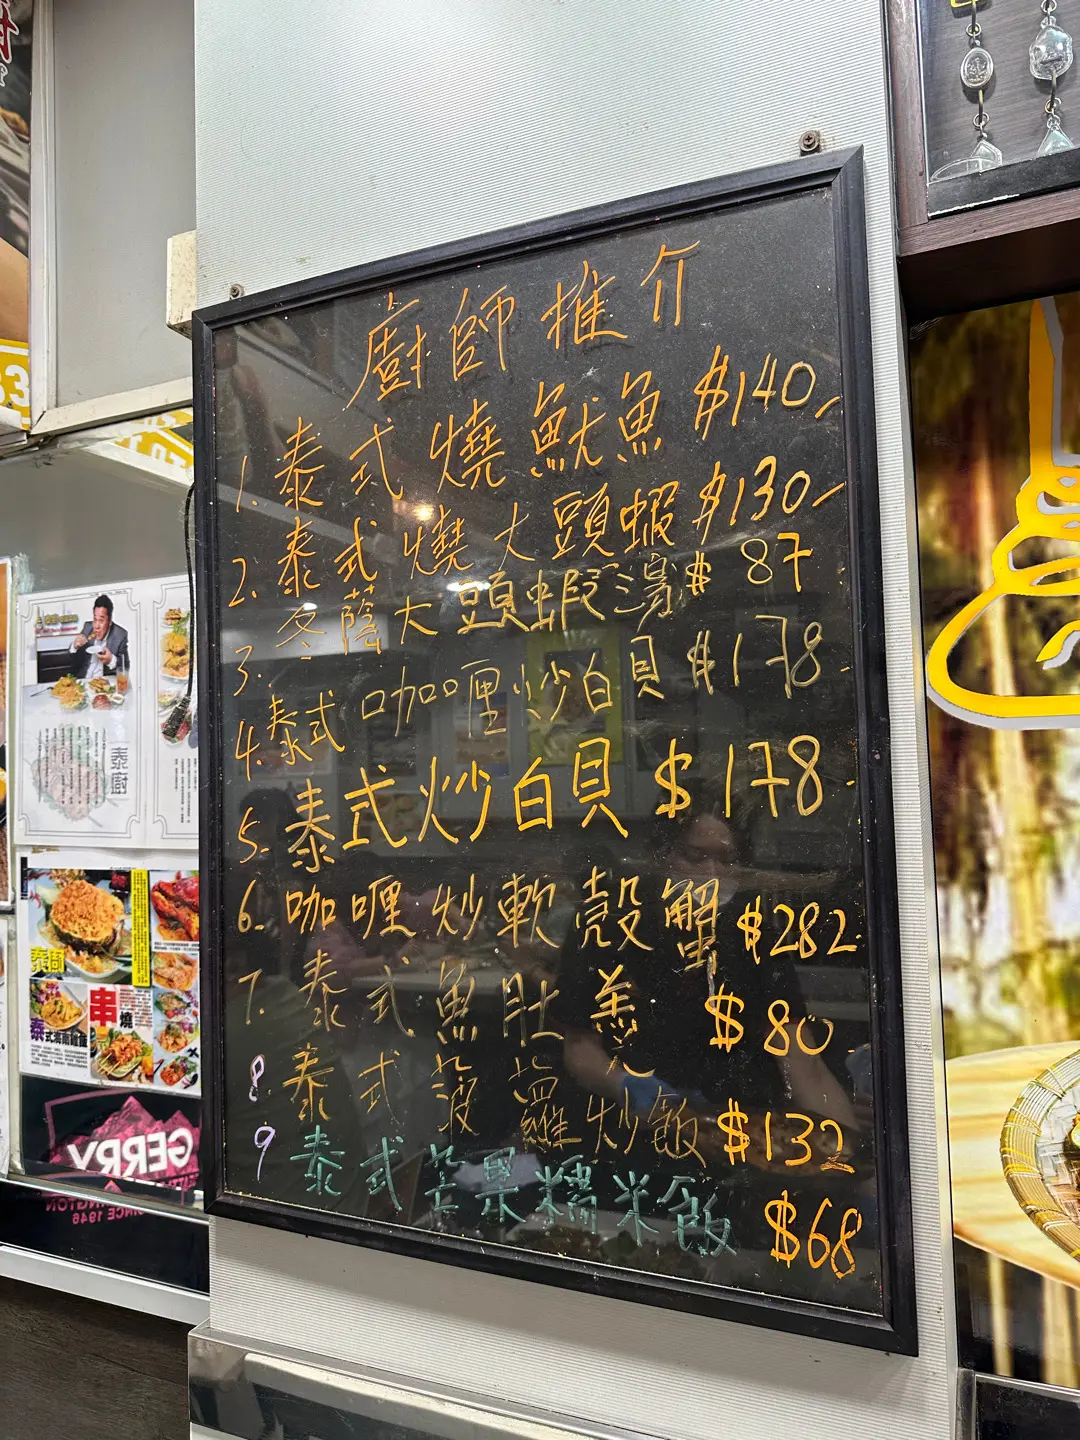 廚師推介
1. 泰式燒魷魚 $140
2. 泰式燒大頭蝦 $130
3. 冬蔭大頭蝦湯 $87
4. 泰式咖喱炒白貝 $178
5. 泰式炒白貝 $178
6. 咖喱炒軟殼蟹 $282
7. 泰式魚肚羹 $80
8 泰式菠蘿炒飯 $132
9 泰式芒果糯米飯 $68
泰廚
泰廚
串燒
GERRY
SINCE 1946